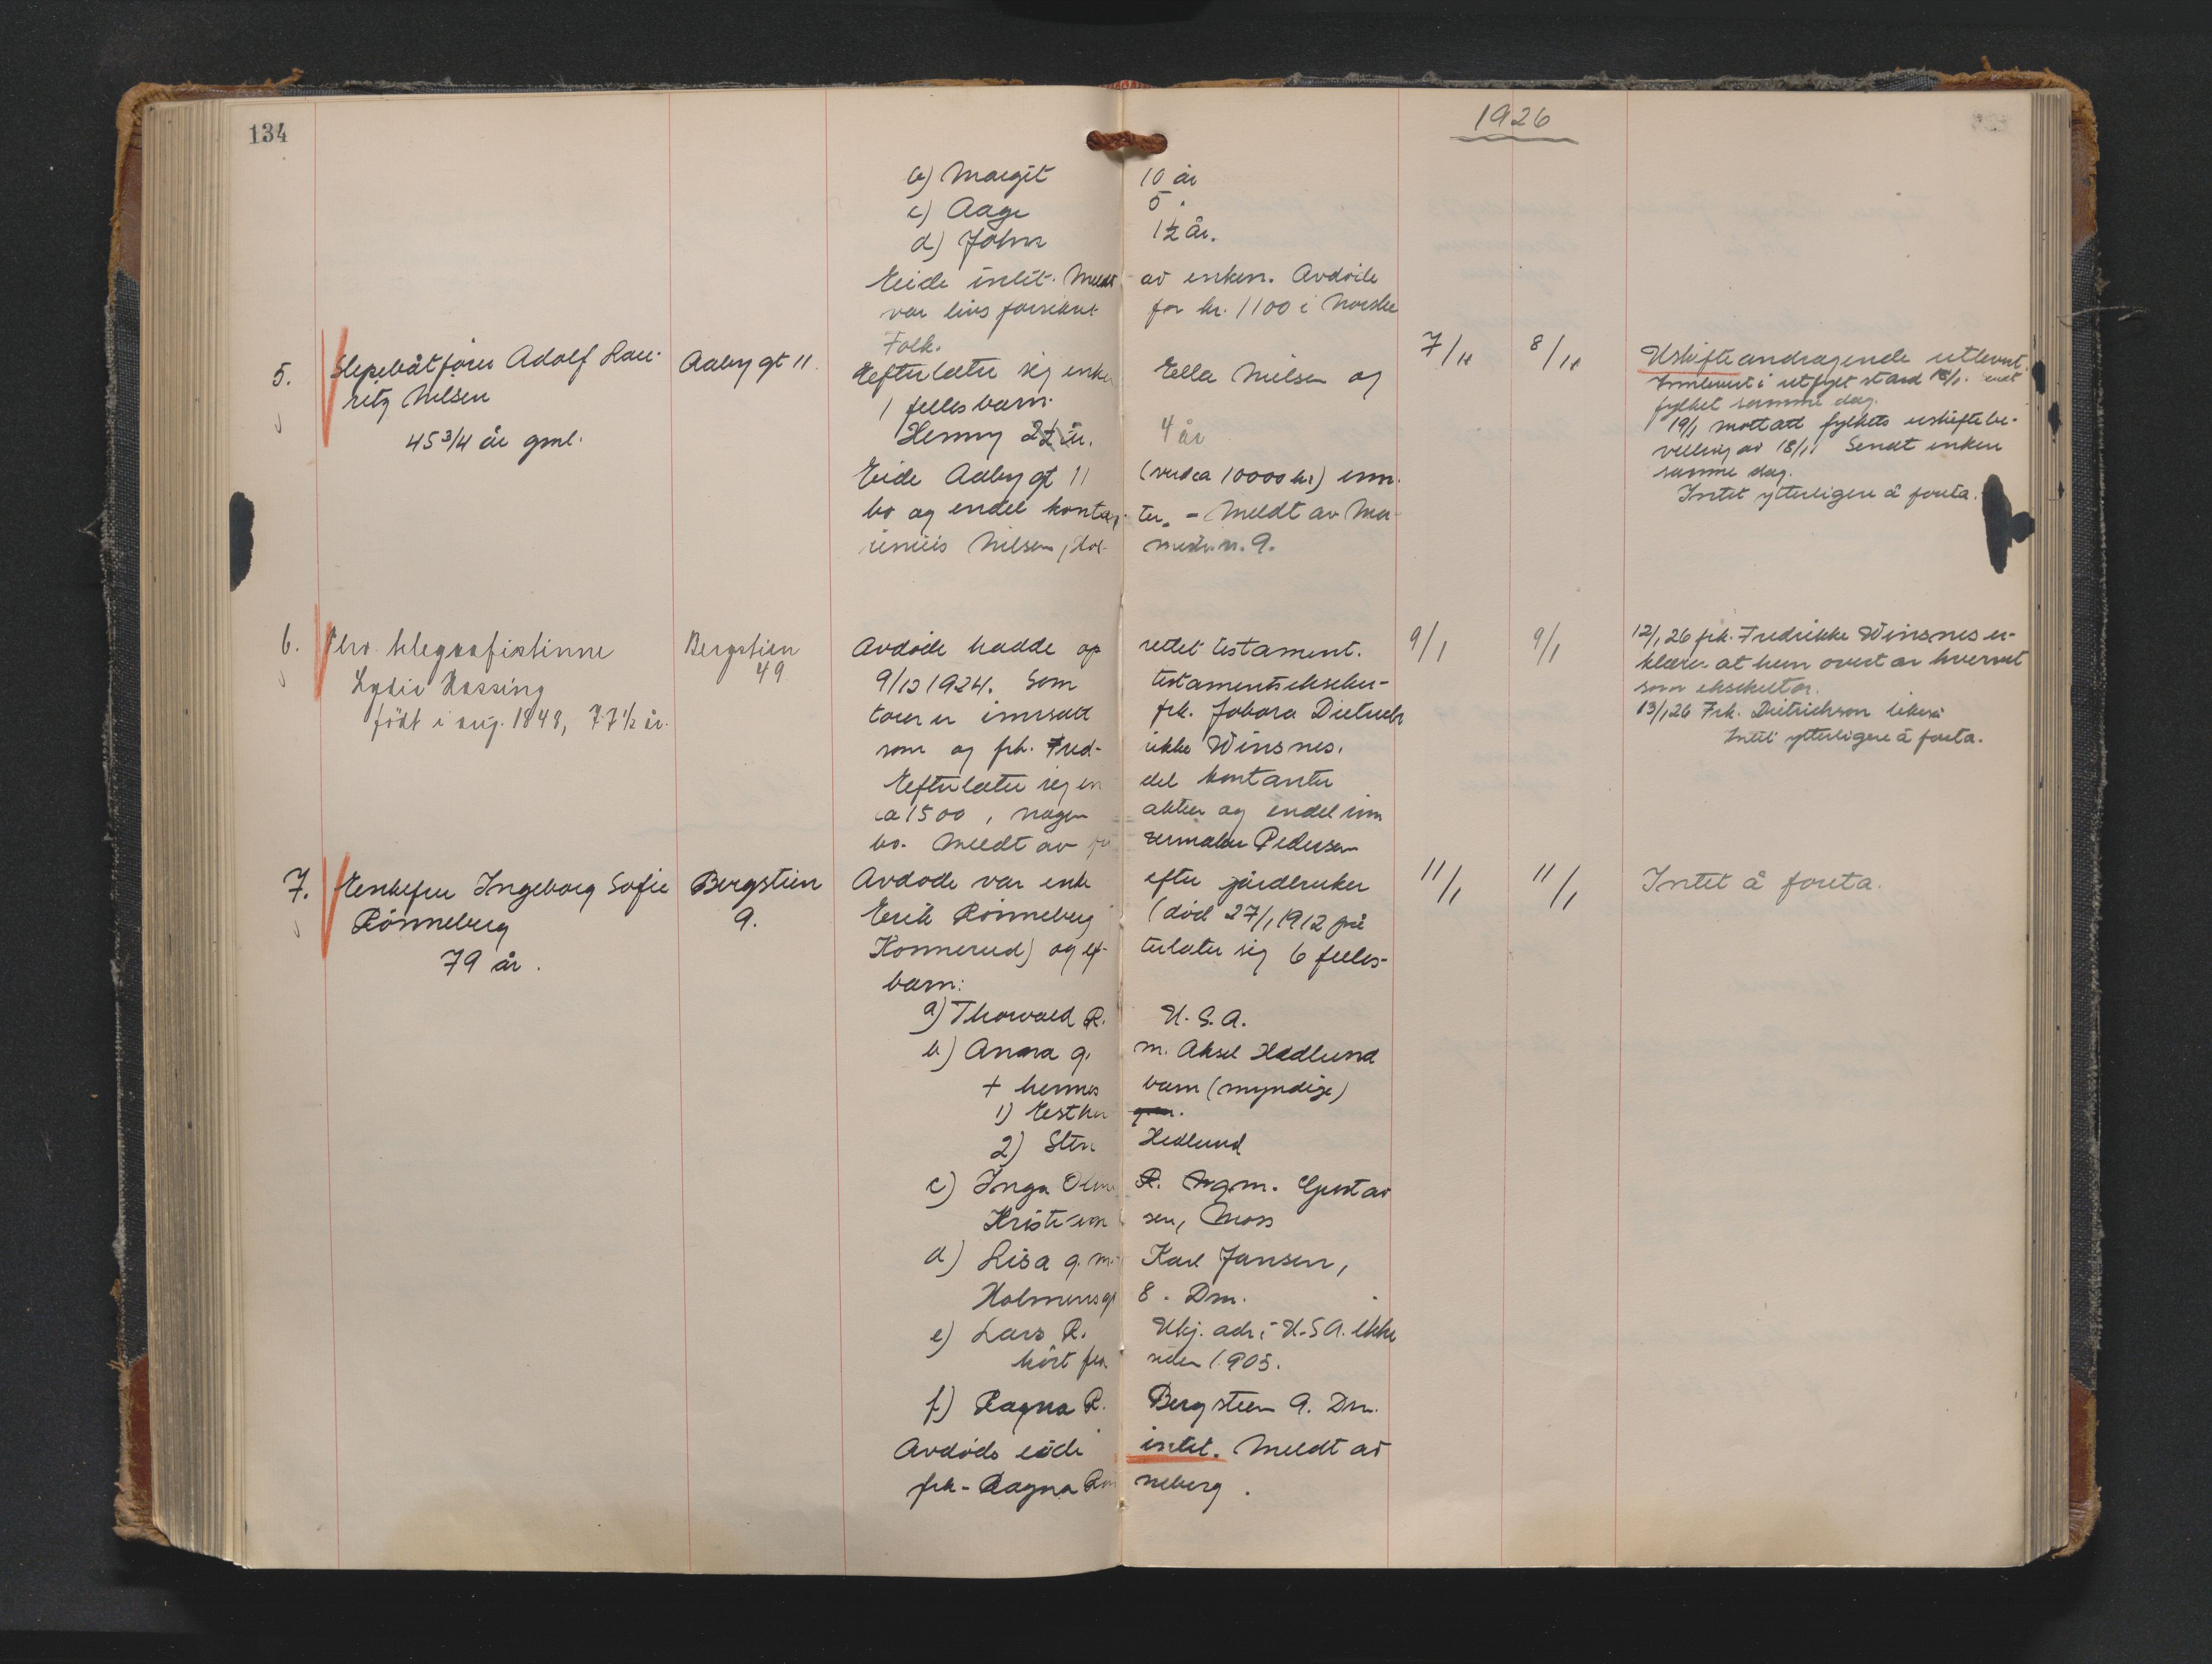 134
1926
b) Margit 10 år
c) Aage 5 "
d) John 1½ år.
Eiede intet. Meldt av enken. Avdøde
var livsforsikret for kr. 1100 i Norske
Folk.
5. Slepebåtfører Adolf Lau- Aaby gt 11. Efterlater sig enke Ella Nilsen og 7/1 8/1 Uskifteandragende utlevert.
ritz Nilsen 1 felles barn. Innlevert i utfylt stand 15/1. Sendt
45 3/4 år gml. Henny 2½ år. 4 år fylket samme dag.
19/1 mottatt fylkets uskiftebe-
villing av 18/1. Sendt enken
samme dag.
Eide Aaby gt 11 (verd ca 10000 kr.) inn-
Intet ytterligere å foreta.
bo og endel kontan- ter. - Meldt av
Nilsen, n. 9.
6. Fhv. telegrafistinne Bergstien Avdøde hadde op rettet testament. 9/1 9/1 12/1 26 frk. Fredrikke Winsnes er-
Lydie Hassing 49 9/12 1924. Som testamentsekseku- klærer at hun overtar hvervet
som eksekutor.
født i aug. 1848, 77½ år. torer er innsatt frk. Johara Dietrich 13/1 26 Frk. Dietrichson likeså
som og frk. Fred- rikke Winsnes. Intet ytterligere å foreta.
Efterlater sig en del kontanter
ca 1500, nogen aktier og endel inn
bo. Meldt av Pedersen
7. Enkefru Ingeborg Sofie Bergstien Avdøde var enke efter jårdbruker 11/1 11/1 Intet å foreta.
Rönneberg 9. Erik Rönneberg (död 27/1 1912 på
79 år. Konnerud) og ef- terlater sig 6 felles-
barn:
a) Thorvald R. U.S.A.
b) Anna g. m. Aksel Hedlund
+ hennes barn (myndige)
1) Esther
2) Sten Hedlund
c) Inga R. Gustav
Kristian sen, Moss
d) Lisa g. m. Karl Jansen,
Holmensgt 8. Dm.
e) Lars R. Ukj. adr. i U.S.A. Ikke
hört fra siden 1905.
f) Ragna R. Bergstien 9. Dm.
Avdöde eide intet. Meldt av
frk. Ragna Rön neberg.